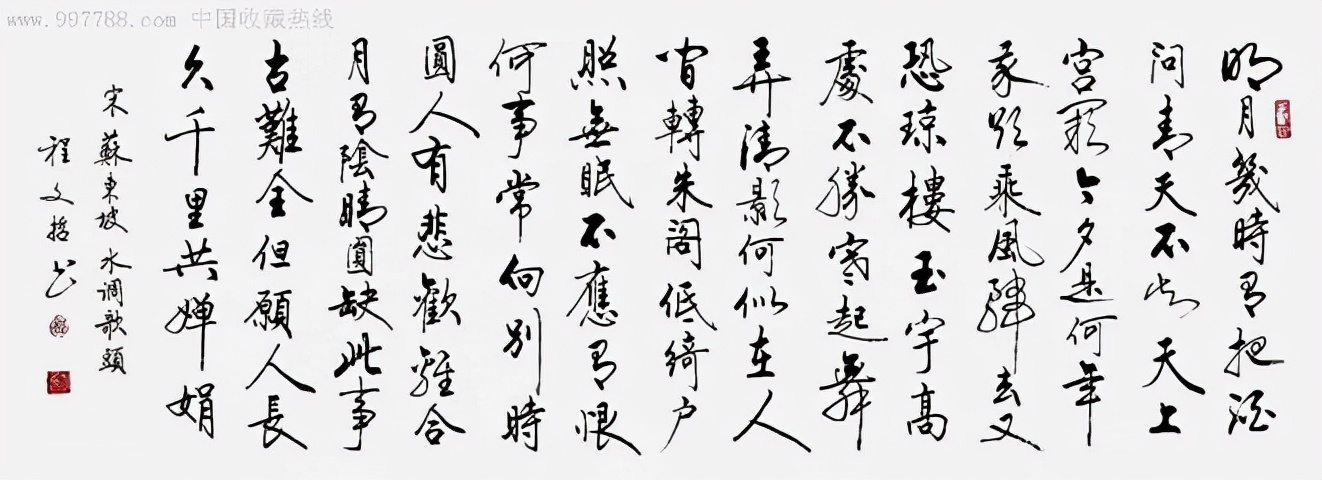 www.997788.com 中国收藏热线
明月幾時有把酒
問青天不知天上
宮闕今夕是何年
我欲乘風歸去又
恐琼樓玉宇高
處不勝寒起舞
弄清影何似在人
間轉朱閣低綺户
照無眠不應有恨
何事常向别時
圓人有悲歡離合
月有陰晴圓缺此事
古難全但願人長
久千里共嬋娟
宋蘇東坡水调歌頭
程文哲书